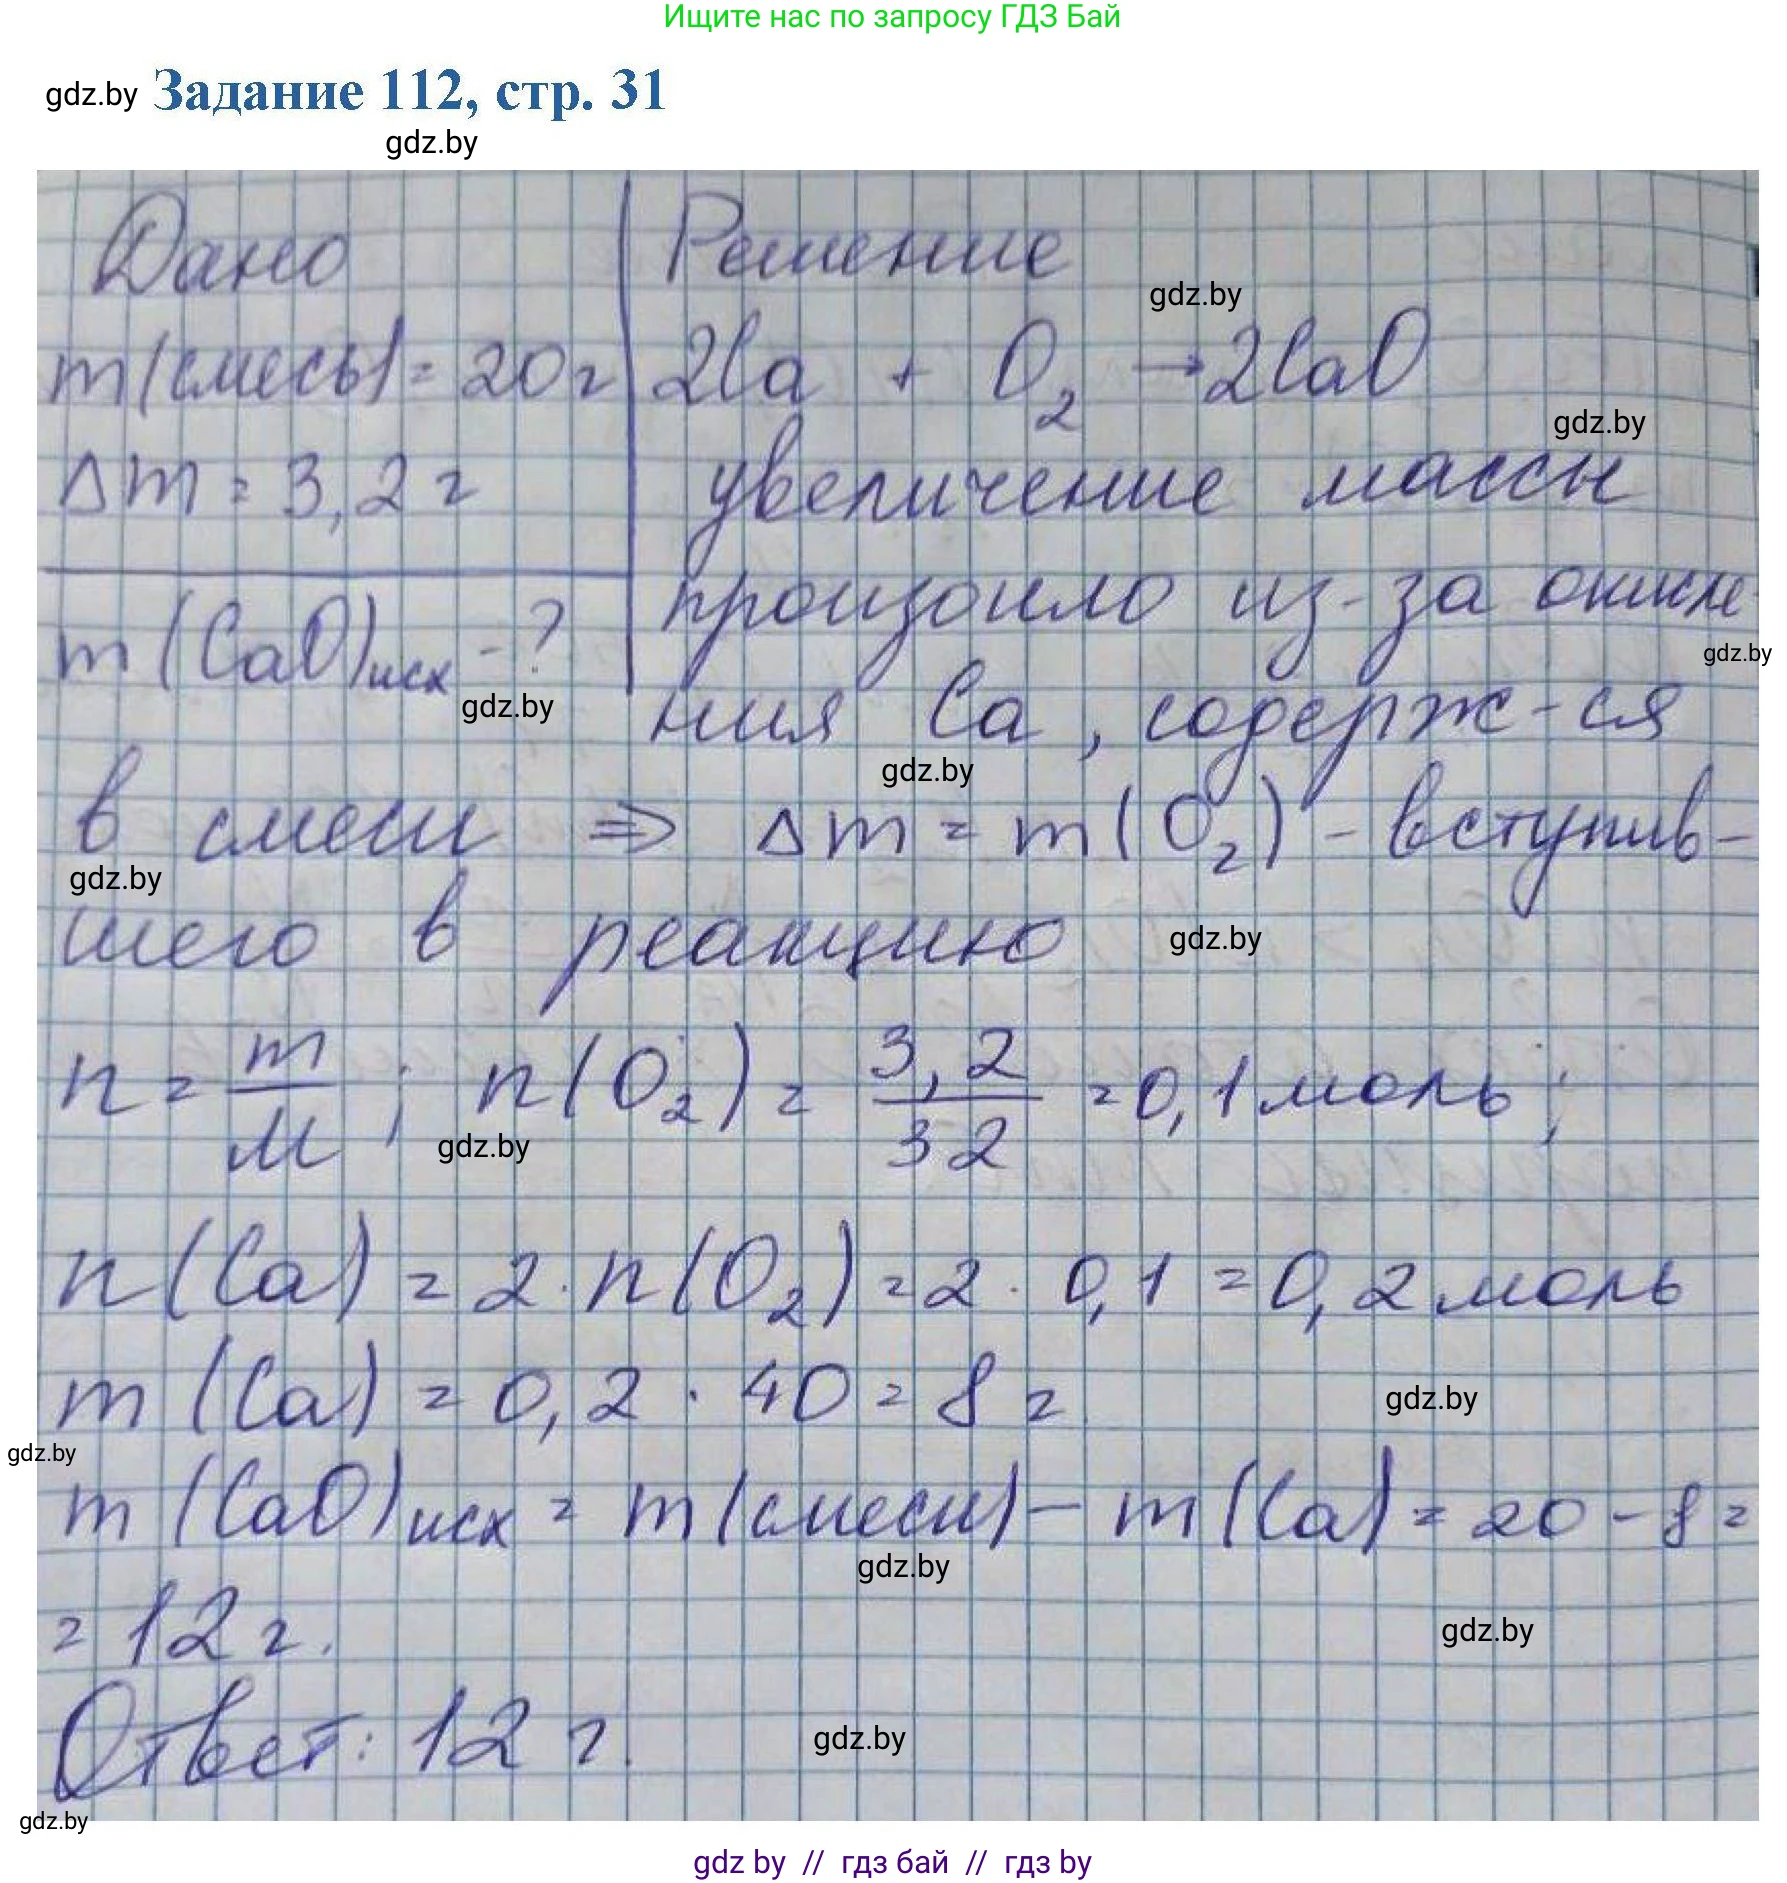 Ищите нас по запросу ГДЗ Бай
gdz.by Задание 112, стр. 31
gdz.by
Дано
m(смесь) = 20 г
Δm = 3,2 г
m(CaO)исх - ?
gdz.by
Решение
gdz.by
2Ca + O2 → 2CaO
gdz.by
увеличение массы
произошло из-за окисле-
gdz.by
ния Ca, содерж-ся
gdz.by
в смеси ⇒ Δm = m(O2) - вступив-
gdz.by
шего в реакцию
gdz.by
n = m/M; n(O2) = 3,2/32 = 0,1 моль;
gdz.by
n(Ca) = 2 · n(O2) = 2 · 0,1 = 0,2 моль
m(Ca) = 0,2 · 40 = 8 г
gdz.by
gdz.by
m(CaO)исх = m(смеси) - m(Ca) = 20 - 8 =
gdz.by
= 12 г.
gdz.by
Ответ: 12 г.
gdz.by
gdz.by
gdz by // гдз бай // гдз by